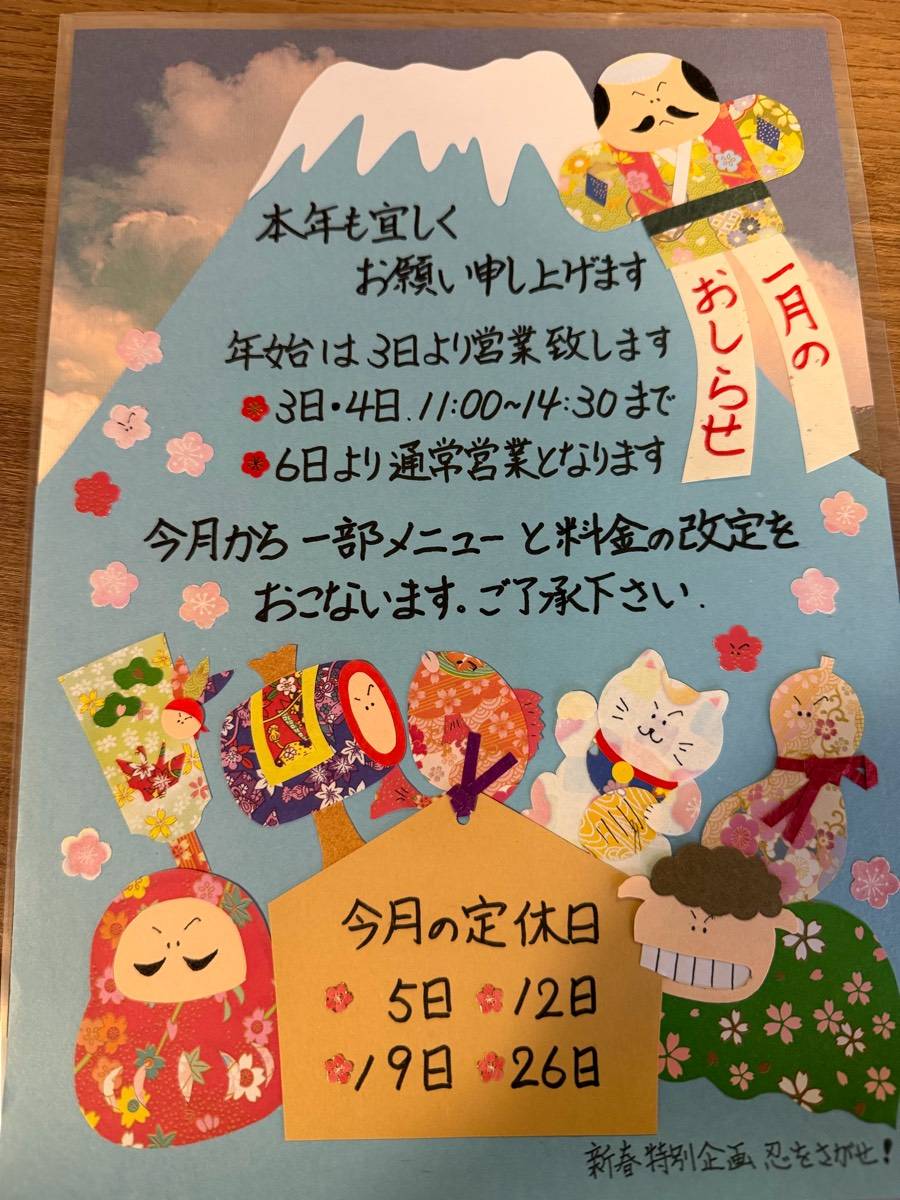 一月の
おしらせ
本年も宜しく
お願い申し上げます
年始は3日より営業致します
3日・4日.11:00~14:30まで
6日より通常営業となります
今月から一部メニューと料金の改定を
おこないます。ご了承下さい.
今月の定休日
5日 12日
19日 26日
新春特別企画 忍をさがせ!